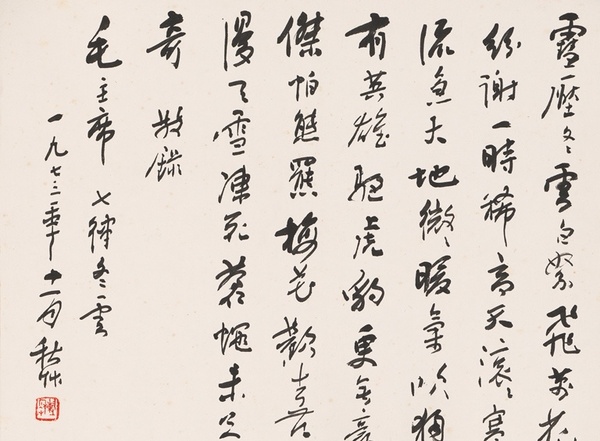 雪壓冬雲白絮飛萬花
紛謝一時稀高天滾滾寒
流急大地微微暖氣吹獨
有英雄驅虎豹更無豪
傑怕熊羆梅花歡喜
漫天雪凍死蒼蠅未足
奇 敬錄
毛主席七律冬雲
一九七三年十一月